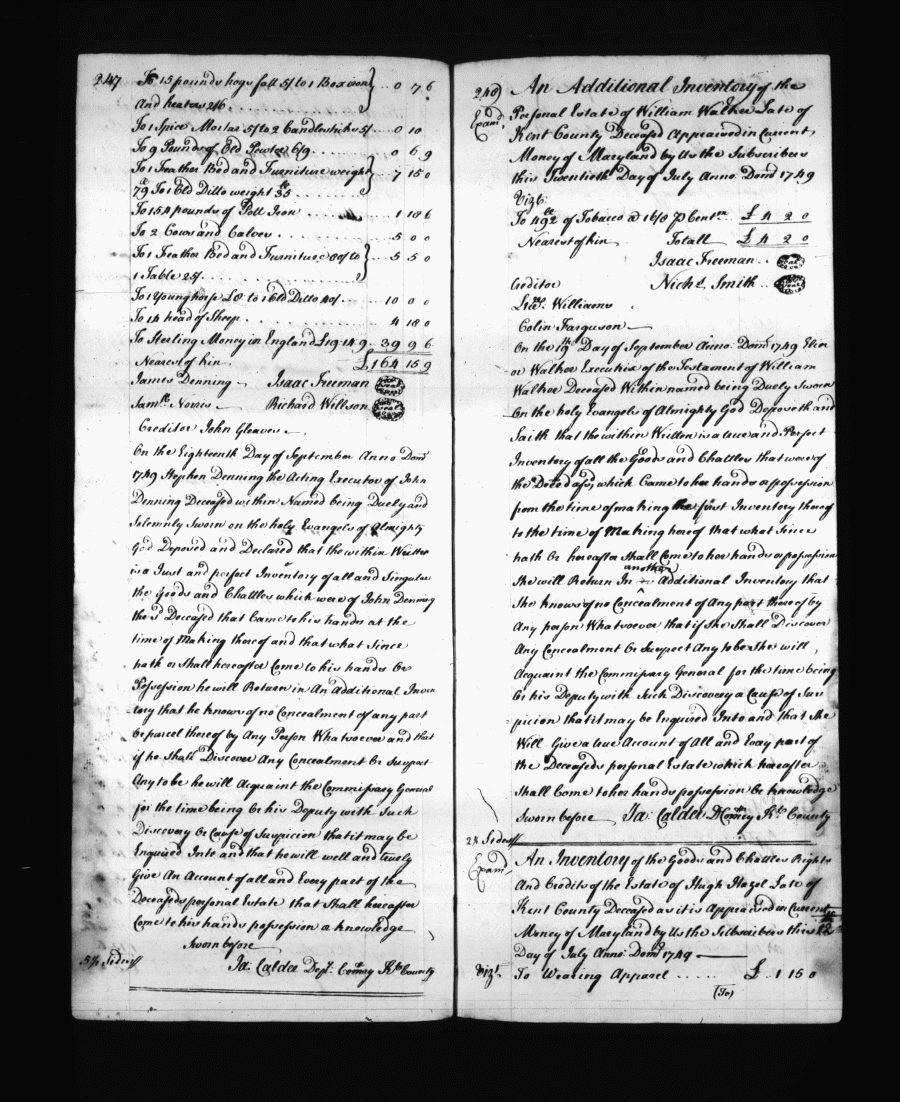 247
To 15 pounds hogs fatt 5/ to 1 Box iron } . . 0 7 6
And heaters 2/6 . . . . . . .
To 1 Spice Mortar 5/ to 2 Candlesticks 5/ . . 0 10
To 9 Pounds of Old Pewter 6/9 . . . . 0 6 9
To 1 Feather Bed and Furniture weight } . 7 15 0
79 To 1 Old Ditto weight 35 . . . . .
To 154 pounds of Pott Iron . . . . 1 18 6
To 2 Cows and Calves . . . . . 5 0 0
To 1 Feather Bed and Furniture 80/ to } . 5 5 0
1 Table 25/ . . . . . . . . .
To 1 Young horse £8 to 1 Old Ditto 40/ . . . 10 0 0
To 14 head of Sheep . . . . . . . 4 18 0
To Sterling Money in England £19 14 9 . . 39 9 6
Nearest of kin . . £164 15 9
James Denning Isaac Freeman Seal
Samll. Norris Richard Willson Seal
Creditor John Gleaves
On the Eighteenth Day of September Anno Domi
1749 Stephen Denning the Acting Executor of John
Denning Deceased within Named being Duely and
Solemnly Sworn on the holy Evangels of Almighty
God Deposed and Declared that the within Written
is a Just and perfect Inventory of all and Singular
the Goods and Chattles which were of John Denning
the Sd Deceased that Came to his hands at the
time of Making thereof and that what Since
hath or Shall hereafter Come to his hands Or
Possession he will Return in An Additional Inven
tory that he knows of no Concealment of any part
Or parcel thereof by Any Person Whatsoever and that
if he Shall Discover Any Concealment Or Suspect
Any to be he will Acquaint the Commissary General
for the time being Or his Deputy with Such
Discovery Or Cause of Suspicion that it may be
Enquired Into and that he will well and truely
Give An Account of all and Every part of the
Deceaseds personal Estate that Shall hereafter
Come to his hands possession or knowledge
Sworn before
Ja: Calder Dept. Comry Kt County
248
Examd
An Additional Inventory of the
Personal Estate of William Walker Late of
Kent County Deceased Appraised in Current
Money of Maryland by Us the Subscribers
this Twentieth Day of July Anno: Domi 1749
Vizt.
To 492 lb of Tobacco @ 16/8 P Cent £ 4 2 0
Nearest of kin Totall £ 4 2 0
Isaac Freeman . . Seal
Creditor Nichs. Smith . . Seal
Williams
Colin Farguson
On the 19th Day of September Anno: Domi 1749 Elin
or Walker Executrix of the Testament of William
Walker Deceased Within named being Duely Sworn
On the holy Evangels of Almighty God Deposeth and
Saith that the within Written is a true and Perfect
Inventory of all the Goods and Chattles that were of
the Deced which Came to her hands or possession
from the time of making the first Inventory thereof
to the time of Making hereof that what Since
hath Or hereafter Shall Come to her hands or possession
She will Return In another Additional Inventory that
She knows of no Concealment of Any part thereof by
Any person Whatsoever that if She Shall Discover
Any Concealment Or Suspect Any to be She will
Acquaint the Commissary General for the time being
Or his Deputy with Such Discovery or Cause of Sus
picion that it may be Enquired Into and that She
Will Give a true Account of All and Every part of
the Deceaseds personal Estate which hereafter
Shall Come to her hands possession Or knowledge
Sworn before Ja: Calder DComry Kt County
Examd
An Inventory of the Goods and Chattles Rights
And Credits of the Estate of Hugh Hazel Late of
Kent County Deceased as it is Appraised in Current
Money of Maryland by Us the Subscribers this 12
Day of July Anno: Domi 1749
Vizt. To Wearing Apparel . . . . . £ . 1 15 0
(To)